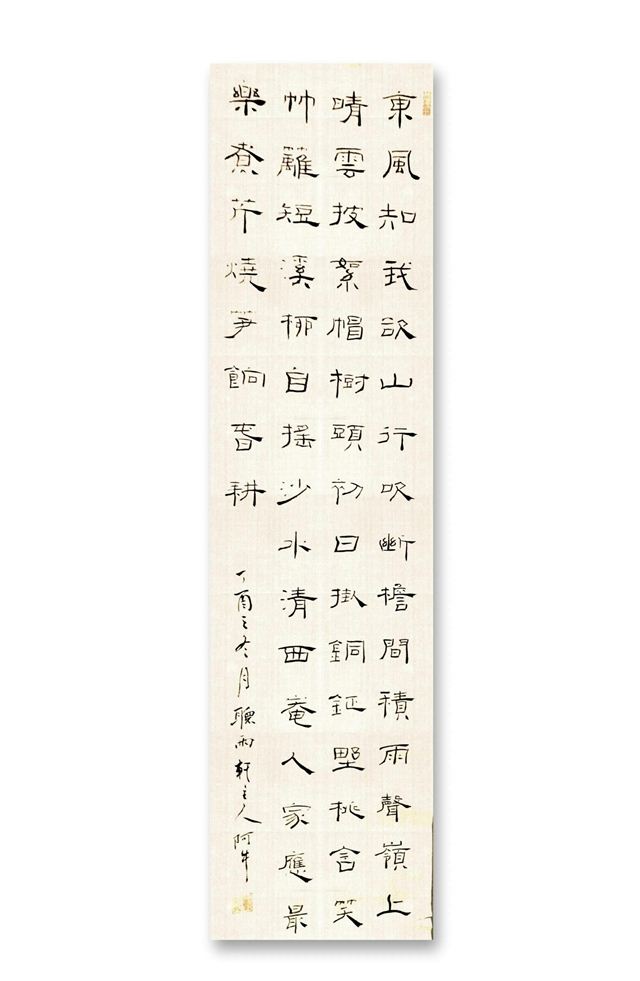 東風知我欲山行吹斷檐間積雨聲嶺上
晴雲披絮帽樹頭初日掛銅鉦野桃含笑
竹籬短溪柳自搖沙水清西菴人家應最
樂煮芹燒笋餉春耕
丁酉之冬月聽雨軒主人阿牛